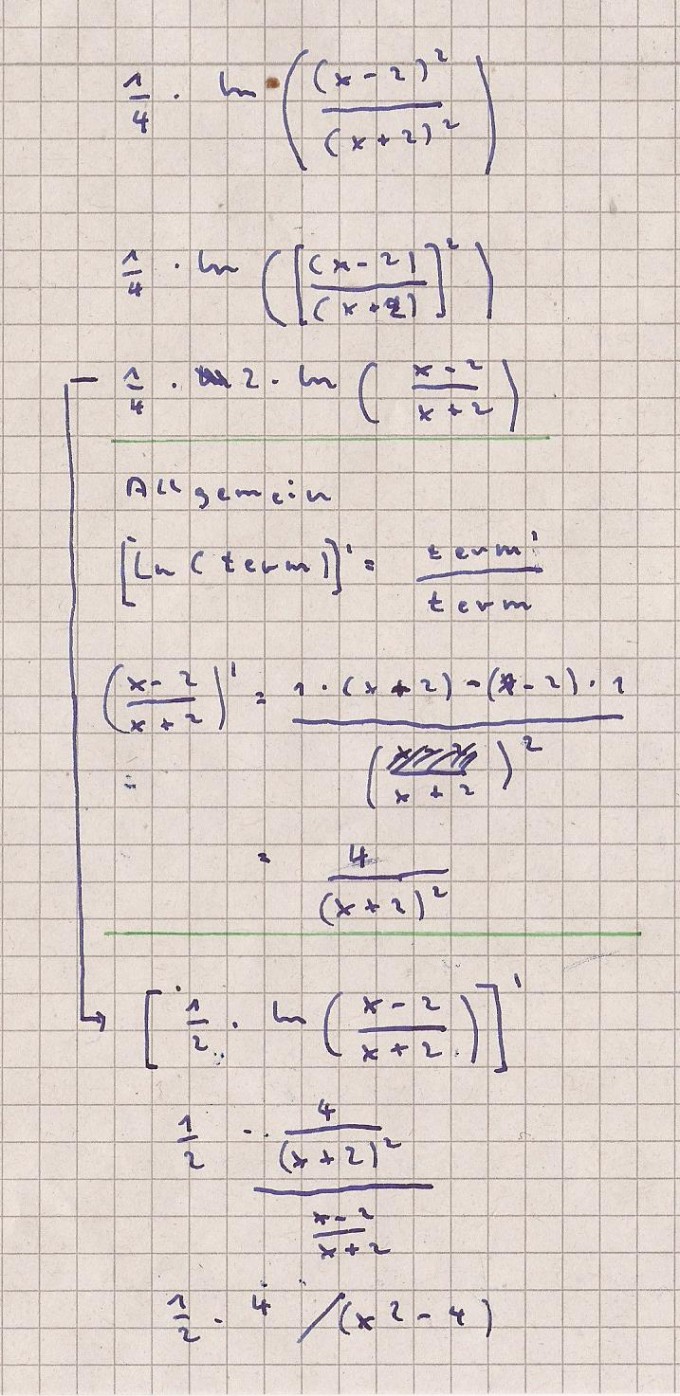 1/4 · ln ( (x-2)² / (x+2)² )
1/4 · ln ( [ (x-2) / (x+2) ]² )
1/4 · 2 · ln ( x-2 / x+2 )
Allgemein
[ln (term)]' = term' / term
( x-2 / x+2 )' = 1 · (x+2) - (x-2) · 1 / ( x+2 )²
=
= 4 / (x+2)²
[ 1/2 · ln ( x-2 / x+2 ) ]'
1/2 · 4 / (x+2)² / x-2 / x+2
1/2 · 4 / (x² - 4)